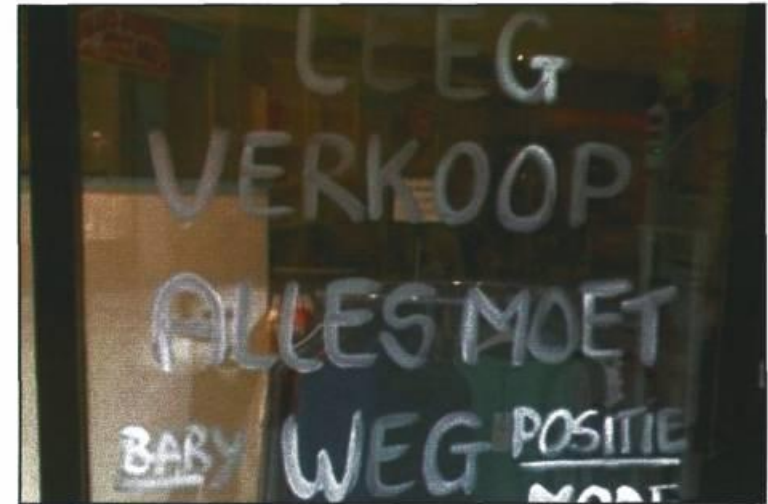 LEEG
VERKOOP
ALLES MOET
BABY WEG POSITIE
MODE